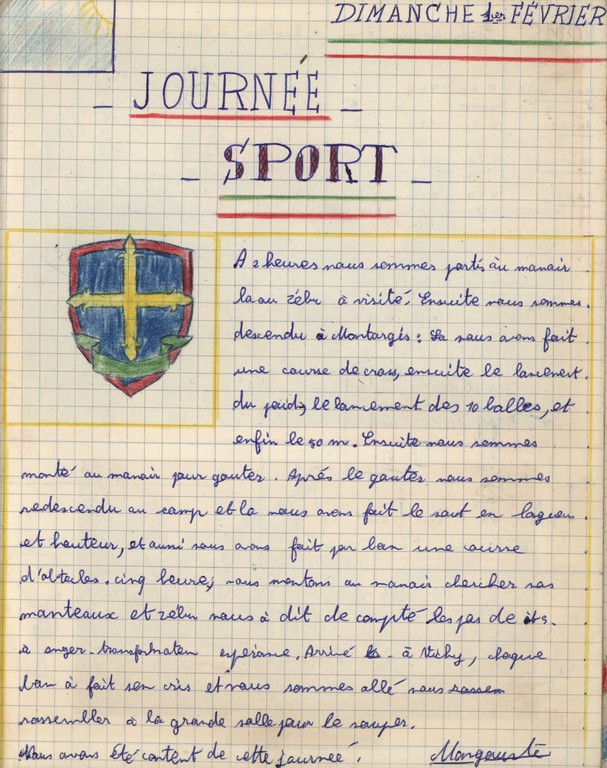 DIMANCHE 1er FÉVRIER
_ JOURNÉE _
_ SPORT _
A 2 heures nous sommes partis au manoir
la ou zébu à visité. Ensuite nous sommes
descendu à Montargis : La nous avons fait
une course de cross, ensuite le lancement
du poids, le lancement des 10 balles, et
enfin le 50 m. Ensuite nous sommes
monté au manoir pour gouter. Après le gouter nous sommes
redescendu au camp et la nous avons fait le saut en lageur
et hauteur, et aussi nous avons fait par ban une course
d'obstacles. cinq heures, nous montons au manoir chercher nos
manteaux et zébu nous à dit de compté les pas de
a anger - transformation espérance. Arrivé à Vichy, chaque
ban à fait son cris et nous sommes allé nous
rassembler à la grande salle pour le souper.
Nous avons été content de cette journeé.
Mangouste